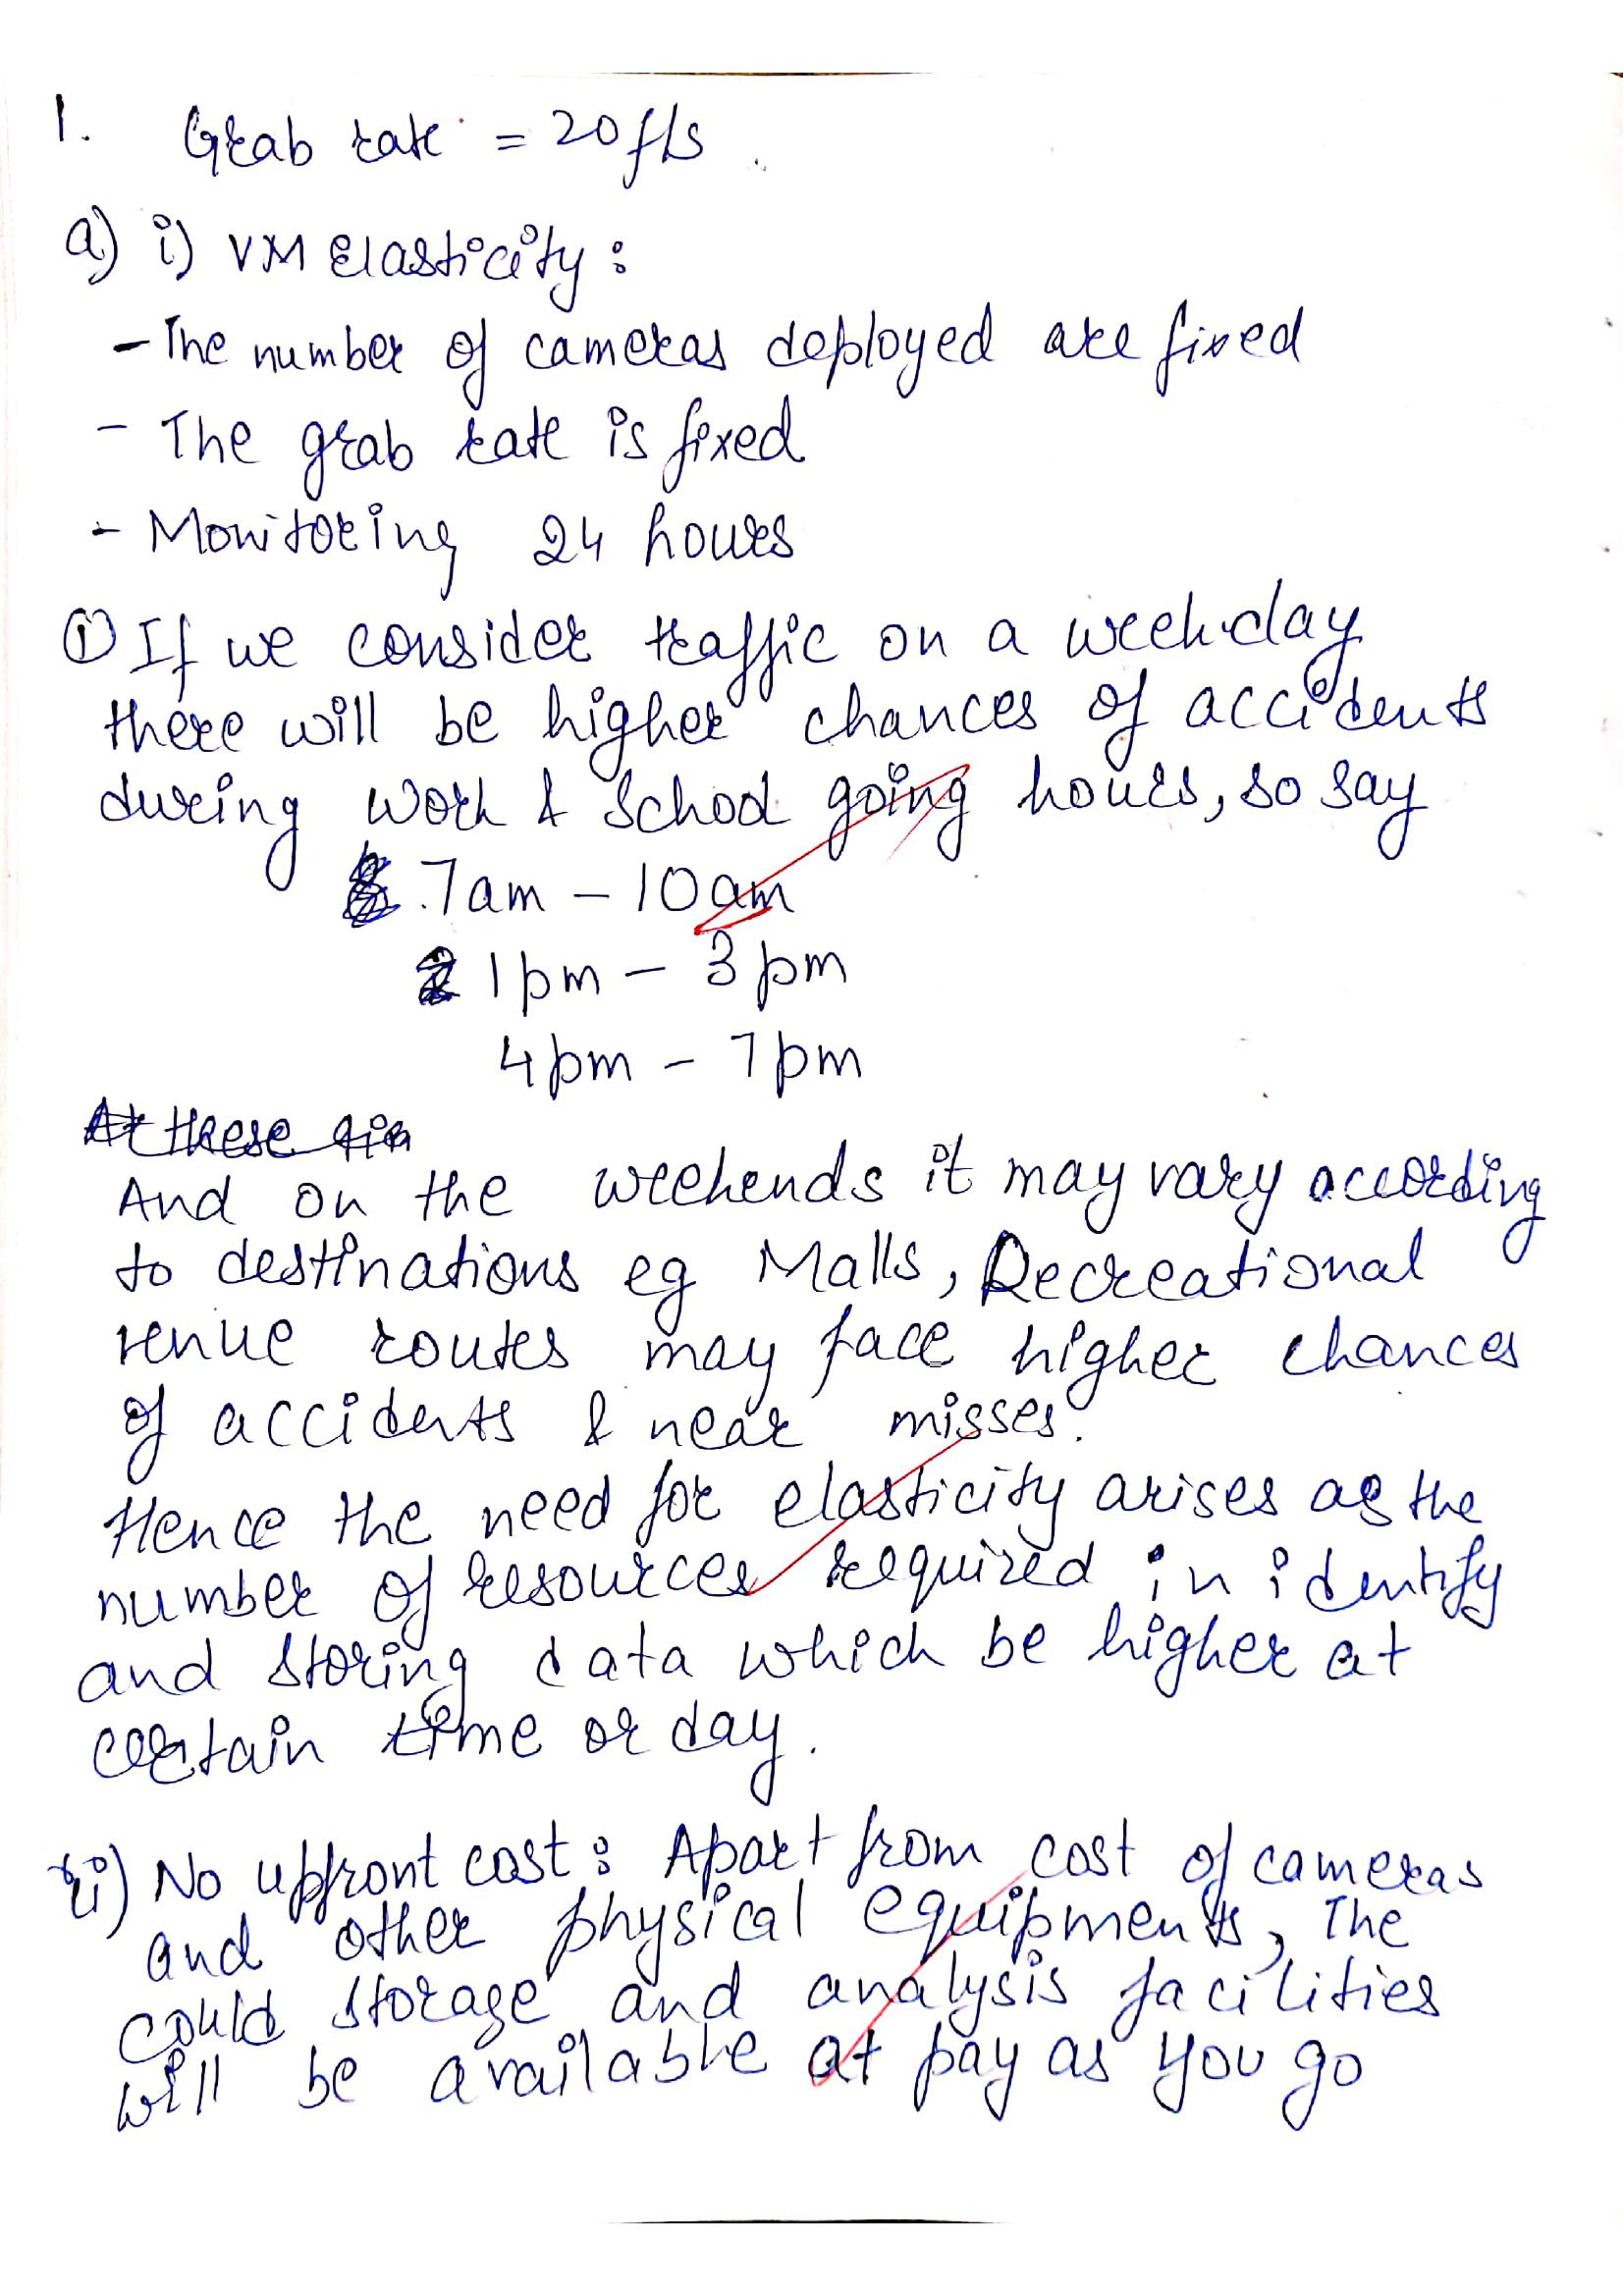 1. Grab rate = 20 f/s.
a) i) VM Elasticity:
- The number of cameras deployed are fixed
- The grab rate is fixed
- Monitoring 24 hours
① If we consider traffic on a weekday
there will be higher chances of accidents
during work & school going hours, so say
7am - 10am
1pm - 3pm
4pm - 7pm
At these
And on the weekends it may vary according
to destinations eg Malls, Recreational
venue routes may face higher chances
of accidents & near misses.
Hence the need for elasticity arises as the
number of resources required in identify
and storing data which be higher at
certain time or day.
ii) No upfront cost: Apart from cost of cameras
and other physical equipments, The
could storage and analysis facilities
will be available at pay as you go